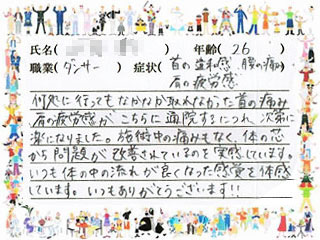 氏名( ) 年齢(26)
職業(ダンサー) 症状(首の違和感 腰の痛み
肩の疲労感
何処に行ってもなかなか取れなかった首の痛み
肩の疲労感が こちらに通院するにつれ、次第に
楽になりました。施術中の痛みもなく、体の芯
から問題が改善されているのを実感しています。
いつも体の中の流れが良くなった感覚を体感
しています。いつもありがとうございます!!